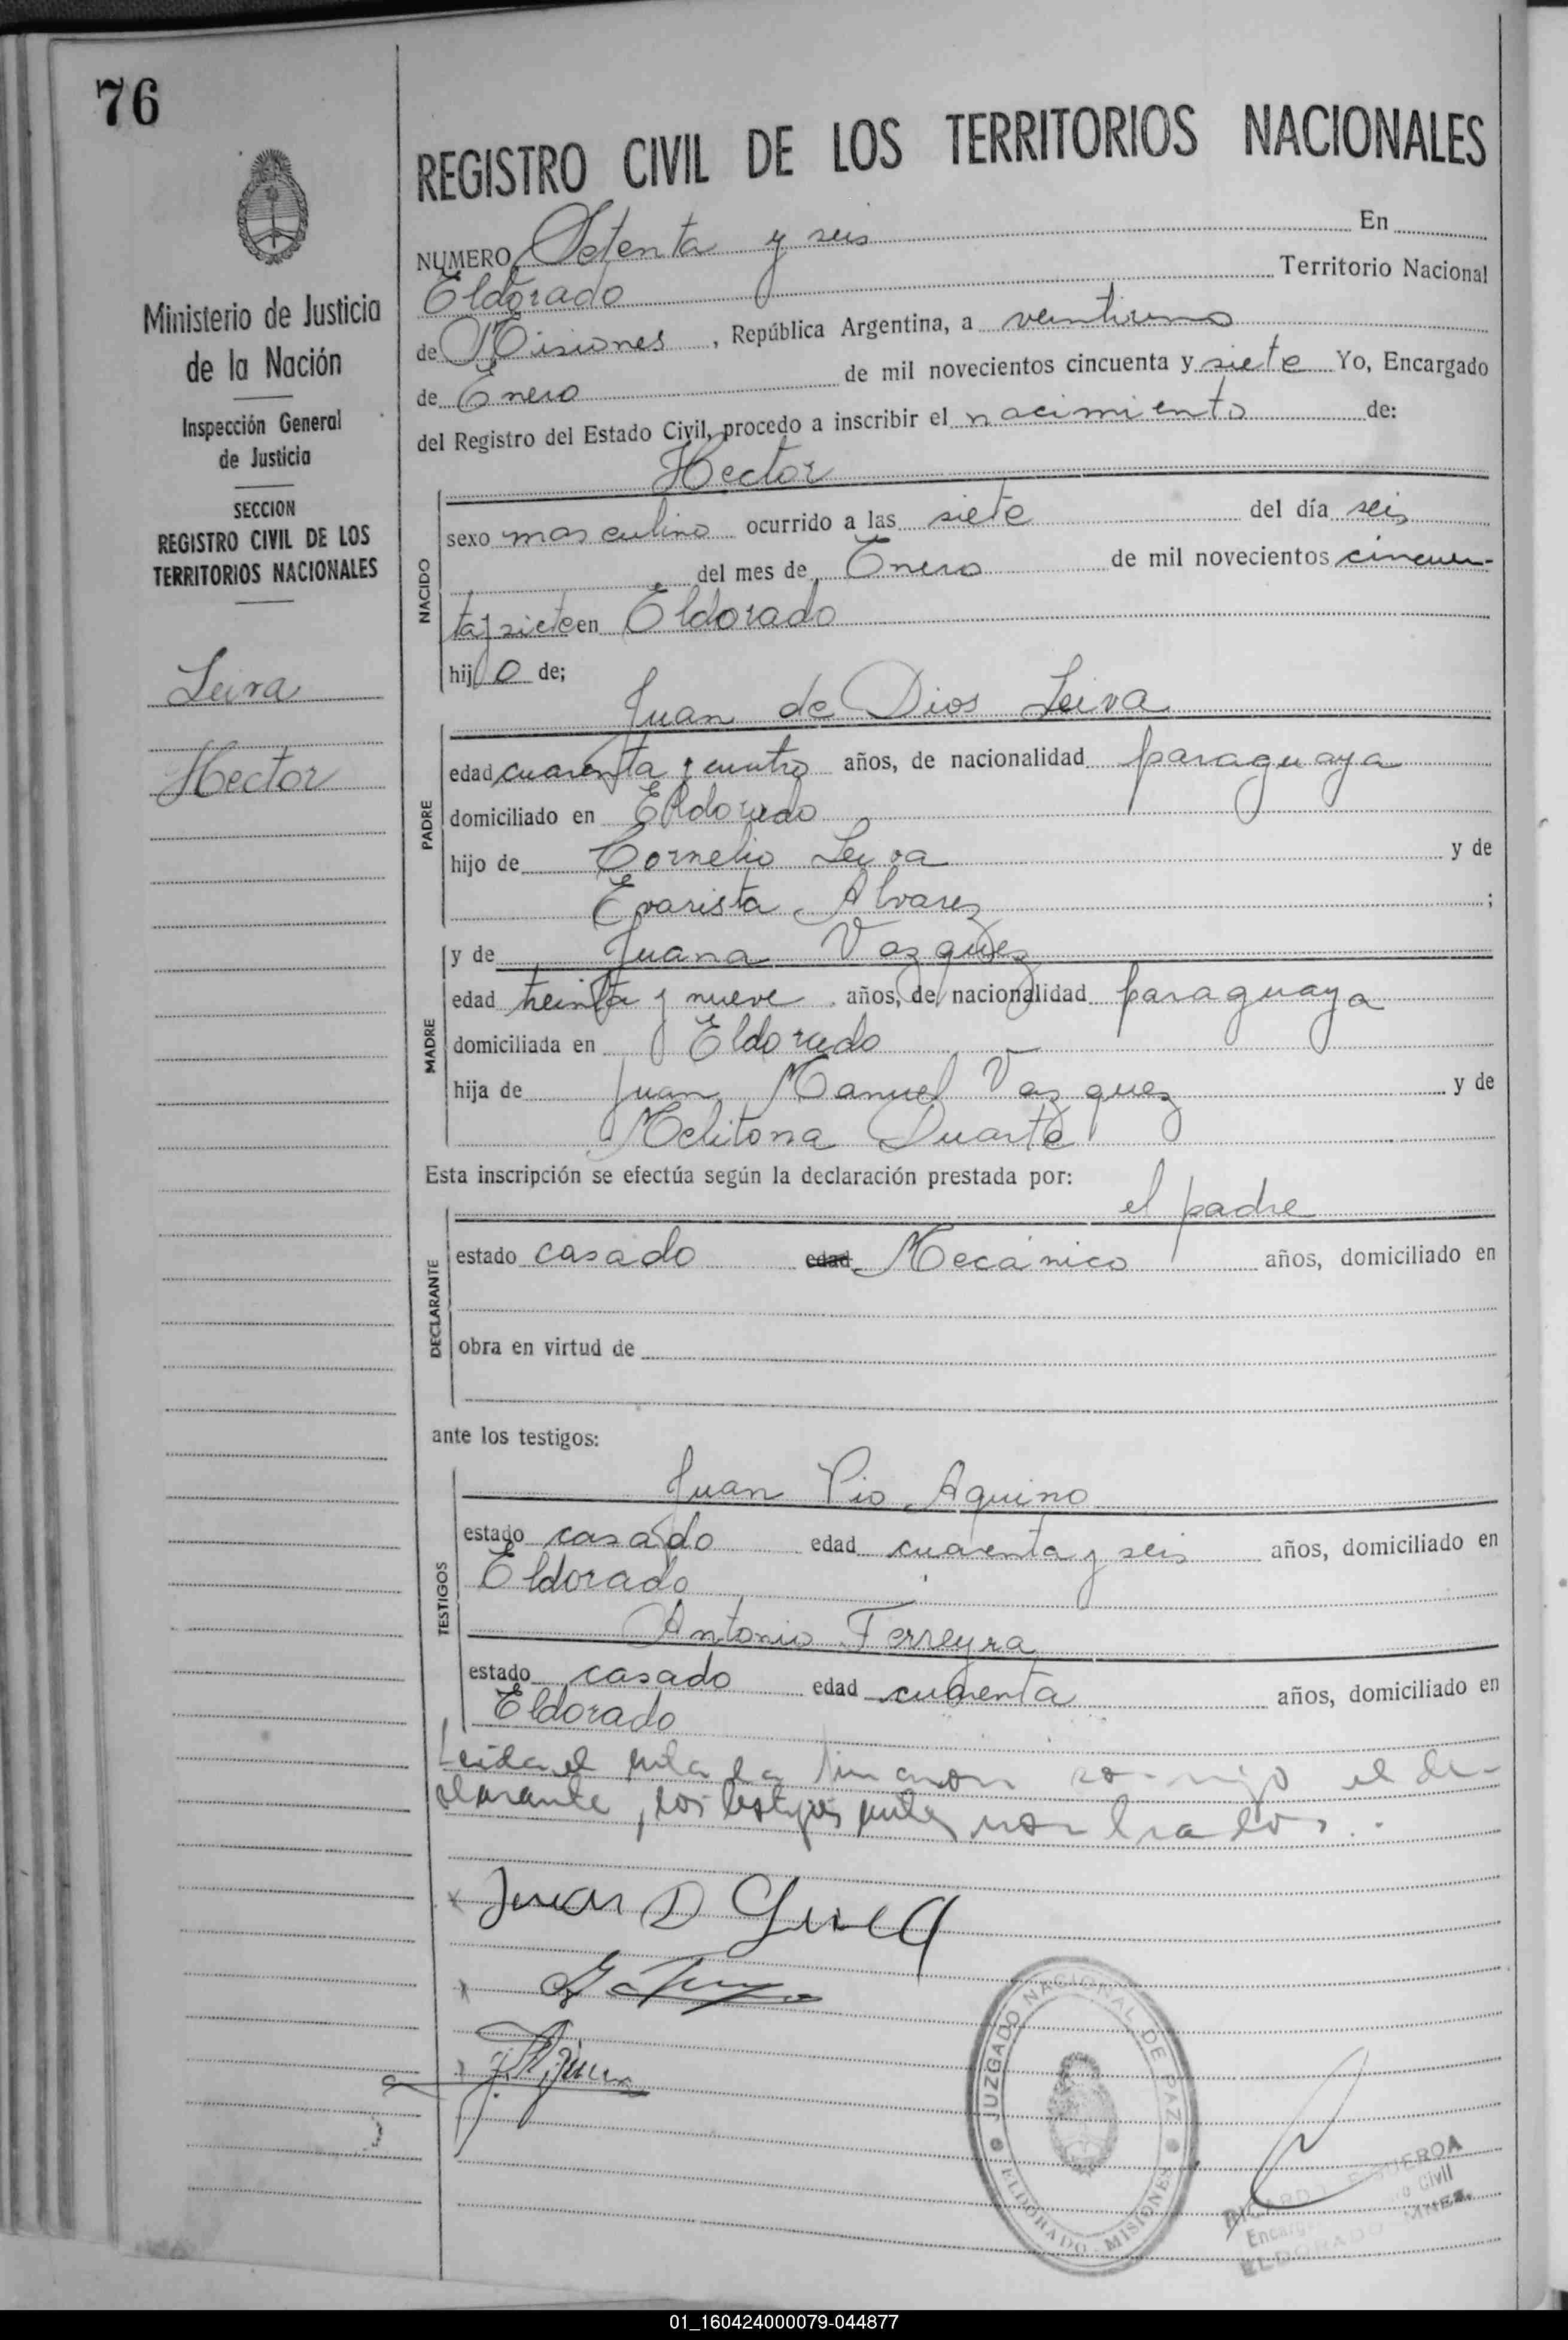 76
Ministerio de Justicia
de la Nación
Inspección General
de Justicia
SECCION
REGISTRO CIVIL DE LOS
TERRITORIOS NACIONALES
Leiva
Hector
REGISTRO CIVIL DE LOS TERRITORIOS NACIONALES
NUMERO Setenta y seis En
Eldorado Territorio Nacional
de Misiones, República Argentina, a veintiuno
de Enero de mil novecientos cincuenta y siete Yo, Encargado
del Registro del Estado Civil, procedo a inscribir el nacimiento de:
Hector
NACIDO
sexo masculino ocurrido a las siete del día seis
del mes de Enero de mil novecientos cincuen-
ta y siete en Eldorado
hijo de;
Juan de Dios Leiva
PADRE
edad cuarenta y cuatro años, de nacionalidad paraguaya
domiciliado en Eldorado
hijo de Cornelio Leiva y de
Evarista Alvarez ;
MADRE
y de Juana Vazquez
edad treinta y nueve años, de nacionalidad paraguaya
domiciliada en Eldorado
hija de Juan Manuel Vazquez y de
Melitona Duarte
Esta inscripción se efectúa según la declaración prestada por:
el padre
DECLARANTE
estado casado edad Mecánico años, domiciliado en
obra en virtud de
ante los testigos:
TESTIGOS
Juan Pio Aquino
estado casado edad cuarenta y seis años, domiciliado en
Eldorado
Antonio Ferreyra
estado casado edad cuarenta años, domiciliado en
Eldorado
Leida el acta la firmaron conmigo el de-
clarante y los testigos antes nombrados.
Juan D Leiva
JUZGADO NACIONAL DE PAZ
ELDORADO - MISIONES
RICARDO FIGUEROA
Civil
ELDORADO MNES.
01_160424000079-044877